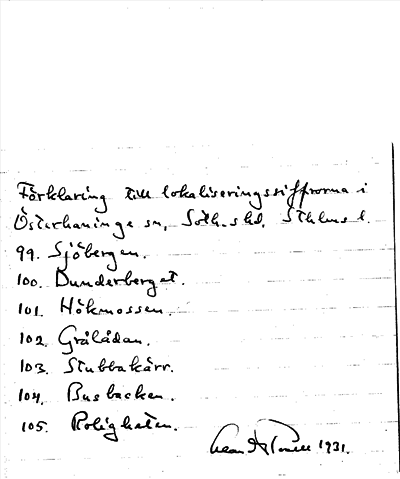 Förklaring till lokaliseringssiffrorna i
Österhaninge sn, Soth. hd, Sthlms l.
99. Sjöbergen.
100. Dunderberget.
101. Hökmossen.
102. Grålådan.
103. Stubbakärr.
104. Busbacken.
105. Roligheten.
1931.